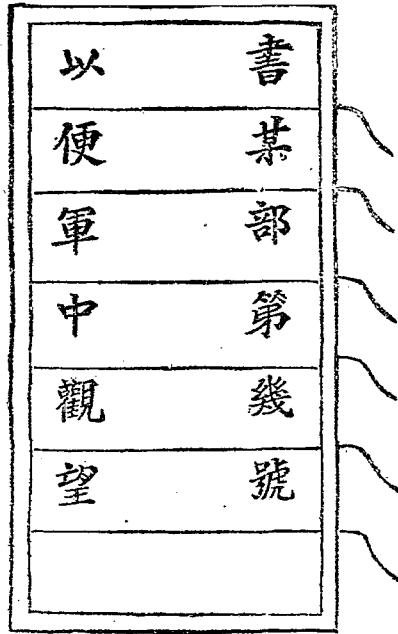 書某部第幾號
以便軍中觀望